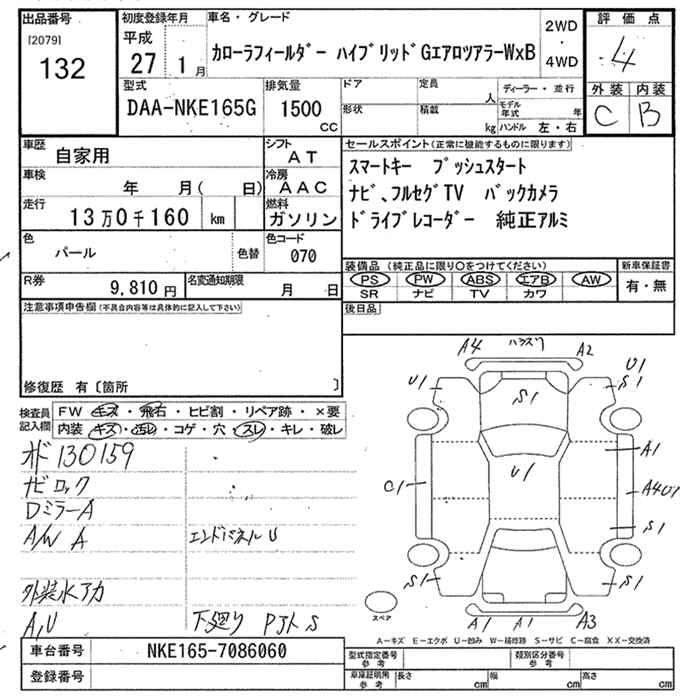 出品番号
[2079]
132
初度登録年月
平成
27 1月
車名・グレード
カローラフィールダー ハイブリッドGエアロツアラーWxB
2WD
・
4WD
評価点
4
外装 内装
C B
型式
DAA-NKE165G
排気量
1500
CC
ドア
形状
定員
人
積載
kg
ディーラー・並行
モデル年式 年
ハンドル 左・右
車歴
自家用
シフト
AT
車検
年 月( 日)
冷房
AAC
走行
13万0千160 km
燃料
ガソリン
色
パール
色替
色コード
070
R券
9,810 円
名変通知期限
月 日
セールスポイント(正常に機能するものに限ります)
スマートキー プッシュスタート
ナビ、フルセグTV バックカメラ
ドライブレコーダー 純正アルミ
装備品(純正品に限り○をつけてください)
PS PW ABS エアB AW
SR ナビ TV カワ
新車保証書
有・無
後日品
注意事項申告欄(不具合内容等は具体的に記入して下さい)
修復歴 有〔箇所 〕
検査員記入欄
FW キズ・飛石・ヒビ割・リペア跡・×要
内装 キズ・汚レ・コゲ・穴・スレ・キレ・破レ
オド 130159
ナビロック
Dミラー A
A/W A
エンドパネル U
外装水アカ
A,U
下廻り P下ト S
A4
A2
U1
U1
S1
S1
A1
U1
C1
A4U1
S1
S1
S1
A1
A1
A3
スペア
A-キズ E-エクボ U-凹み W-補修跡 S-サビ C-腐食 XX-交換済
車台番号
NKE165-7086060
登録番号
型式指定番号 参考
類別区分番号 参考
車庫証明用 参考
長さ cm
幅 cm
高さ cm